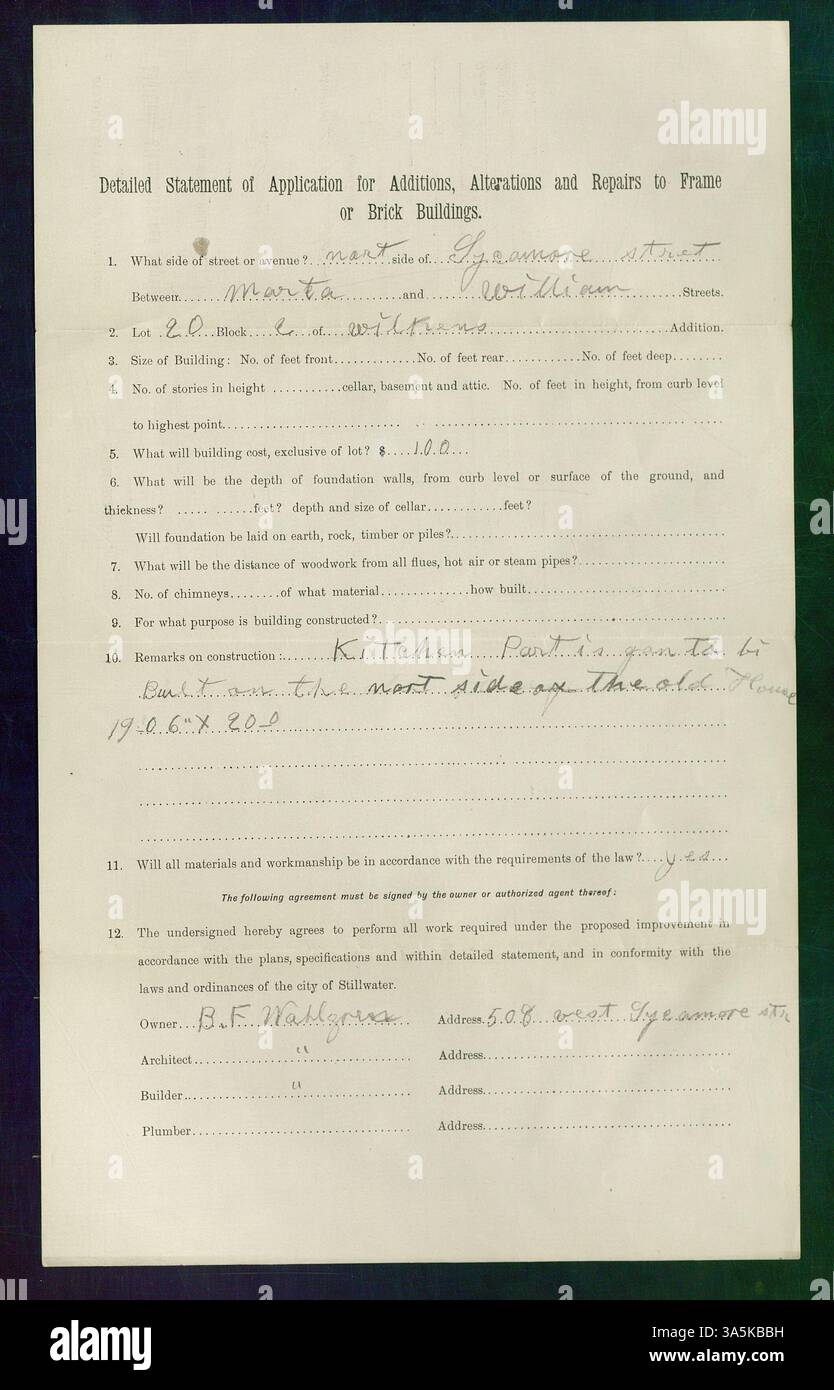 Detailed Statement of Application for Additions, Alterations and Repairs to Frame
or Brick Buildings.
1. What side of street or avenue? nort side of Sycamore street
Between marta and william Streets.
2. Lot 20 Block 2 of wilkens Addition.
3. Size of Building: No. of feet front............No. of feet rear............No. of feet deep........
4. No. of stories in height ...........cellar, basement and attic. No. of feet in height, from curb level
to highest point..........................
5. What will building cost, exclusive of lot? $ 100
6. What will be the depth of foundation walls, from curb level or surface of the ground, and
thickness? ..... .......feet? depth and size of cellar............feet?
Will foundation be laid on earth, rock, timber or piles?..............................
7. What will be the distance of woodwork from all flues, hot air or steam pipes?..............................
8. No. of chimneys........of what material..............how built..............................
9. For what purpose is building constructed?..............................
10. Remarks on construction: Kittchen Part is gon to bi
Built on the nort side of the old House
19-0 6" X 20-0
11. Will all materials and workmanship be in accordance with the requirements of the law? yes
The following agreement must be signed by the owner or authorized agent thereof:
12. The undersigned hereby agrees to perform all work required under the proposed improvement in
accordance with the plans, specifications and within detailed statement, and in conformity with the
laws and ordinances of the city of Stillwater.
Owner B.F Wahlgren Address 508 west Sycamore str
Architect " Address
Builder " Address
Plumber Address
alamy
a
alamy
Image ID: 3A5KBBH
www.alamy.com